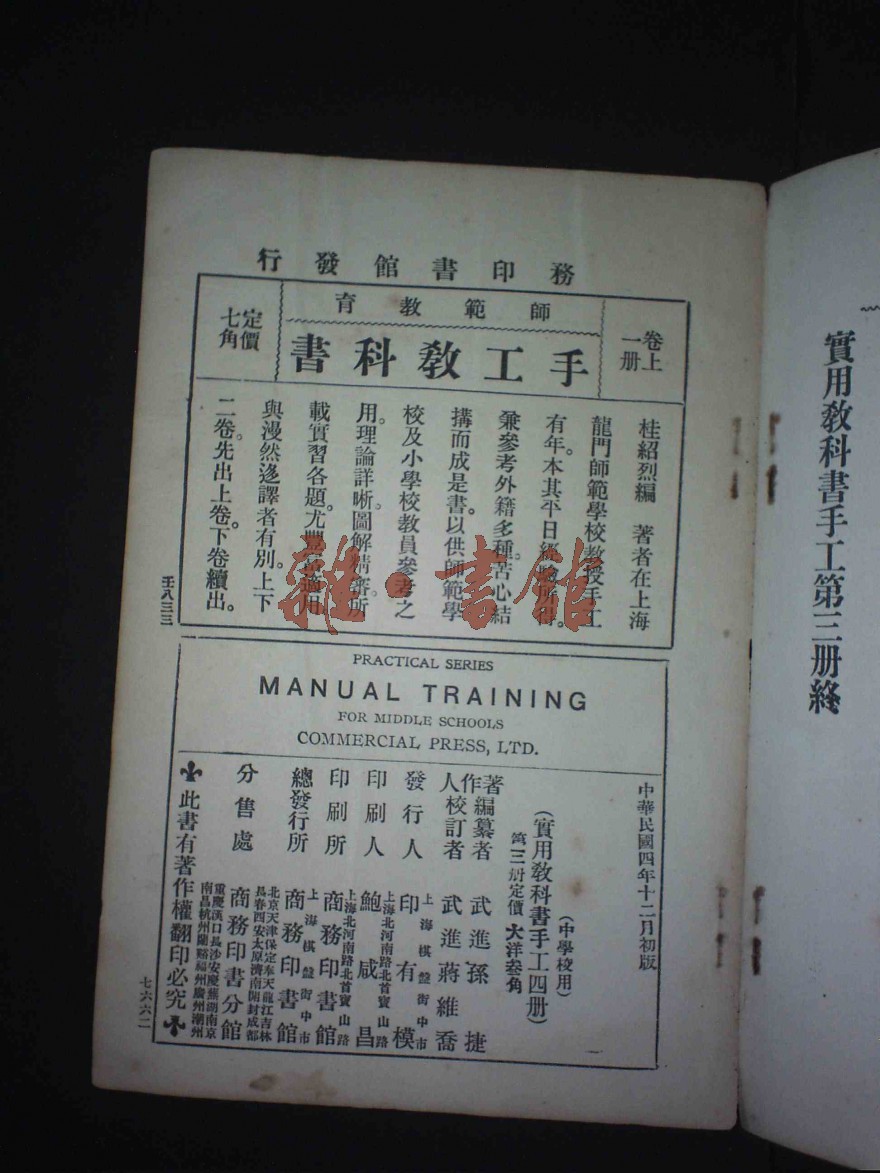 實用教科書手工第三册終
務印書館發行
卷上
一册
師範教育
手工教科書
定價
七角
桂紹烈編　著者在上海
龍門師範學校教授手工
有年。本其平日經驗所得。
兼參考外籍多種。苦心結
搆而成是書。以供師範學
校及小學校教員參考之
用。理論詳晰。圖解精審。所
載實習各題。尤豐富適用
與漫然迻譯者有別。上下
二卷。先出上卷。下卷續出。
壬八三三
雜·書館
PRACTICAL SERIES
MANUAL TRAINING
FOR MIDDLE SCHOOLS
COMMERCIAL PRESS, LTD.
中華民國四年十二月初版
(中學校用)
(實用教科書手工四册)
第三册定價大洋叁角
著作人 編纂者 武進孫捷
校訂者 武進蔣維喬
發行人 印有模
上海棋盤街中市
印刷人 鮑咸昌
上海北河南路北首寶山路
印刷所 商務印書館
上海北河南路北首寶山路
總發行所 商務印書館
上海棋盤街中市
分售處 商務印書分館
北京天津保定奉天龍江吉林
長春西安太原濟南開封成都
重慶漢口長沙安慶蕪湖南京
南昌杭州蘭谿福州廣州潮州
此書有著作權翻印必究
七六六二